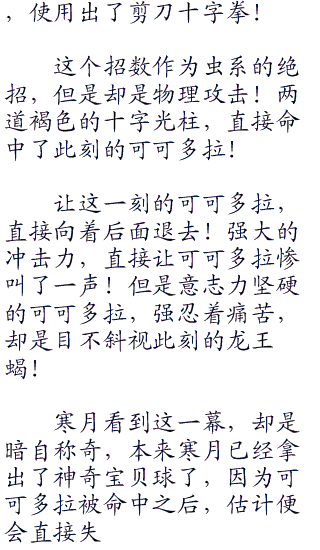 ，使用出了剪刀十字拳！
这个招数作为虫系的绝
招，但是却是物理攻击！两
道褐色的十字光柱，直接命
中了此刻的可可多拉！
让这一刻的可可多拉，
直接向着后面退去！强大的
冲击力，直接让可可多拉惨
叫了一声！但是意志力坚硬
的可可多拉，强忍着痛苦，
却是目不斜视此刻的龙王
蝎！
寒月看到这一幕，却是
暗自称奇，本来寒月已经拿
出了神奇宝贝球了，因为可
可多拉被命中之后，估计便
会直接失